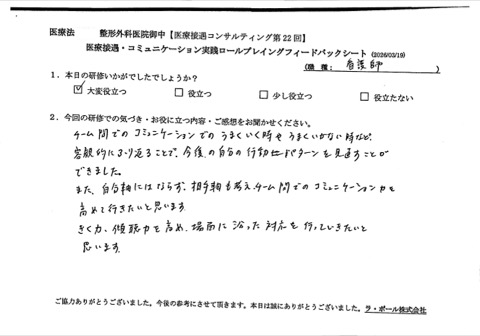 医療法 整形外科医院御中【医療接遇コンサルティング第22回】
医療接遇・コミュニケーション実践ロールプレイングフィードバックシート (2026/03/19)
(職種: 看護師 )
1. 本日の研修いかがでしたでしょうか?
☑ 大変役立つ □ 役立つ □ 少し役立つ □ 役立たない
2. 今回の研修での気づき・お役に立つ内容・ご感想をお聞かせください。
チーム間でのコミュニケーションでのうまくいく時やうまくいかない時など、
客観的にふり返ることで、今後の自分の行動パターンを見直すことが
できました。
また、自分軸にはならず、相手軸も考え、チーム間でのコミュニケーション力を
高めて行きたいと思います。
きく力、傾聴力を高め、場面に沿った対応を行っていきたいと
思います。
ご協力ありがとうございました。今後の参考にさせて頂きます。本日は誠にありがとうございました。ラ・ポール株式会社